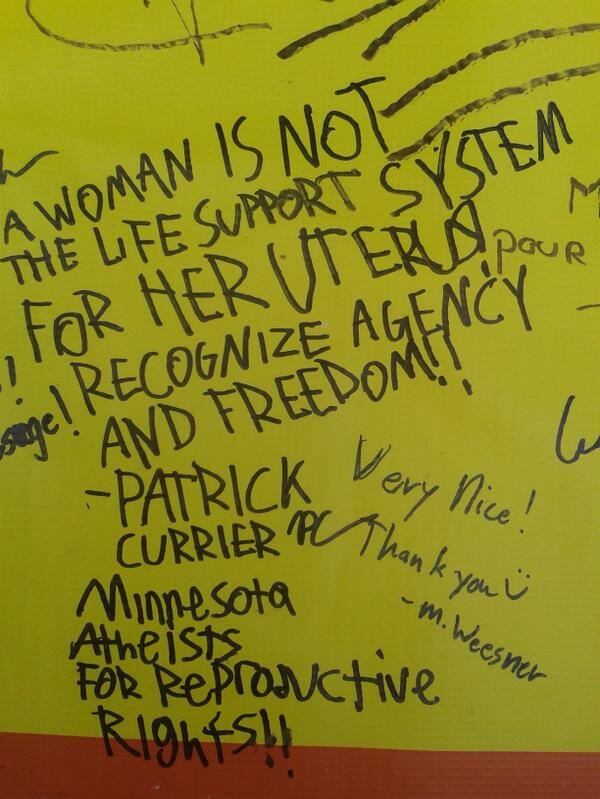 A WOMAN IS NOT
THE LIFE SUPPORT SYSTEM
FOR HER UTERUS!
pour
RECOGNIZE AGENCY
AND FREEDOM!!
-PATRICK
CURRIER PC
Very Nice!
Thank you
-M. Weesner
Minnesota
Atheists
FOR Reproductive
Rights!!